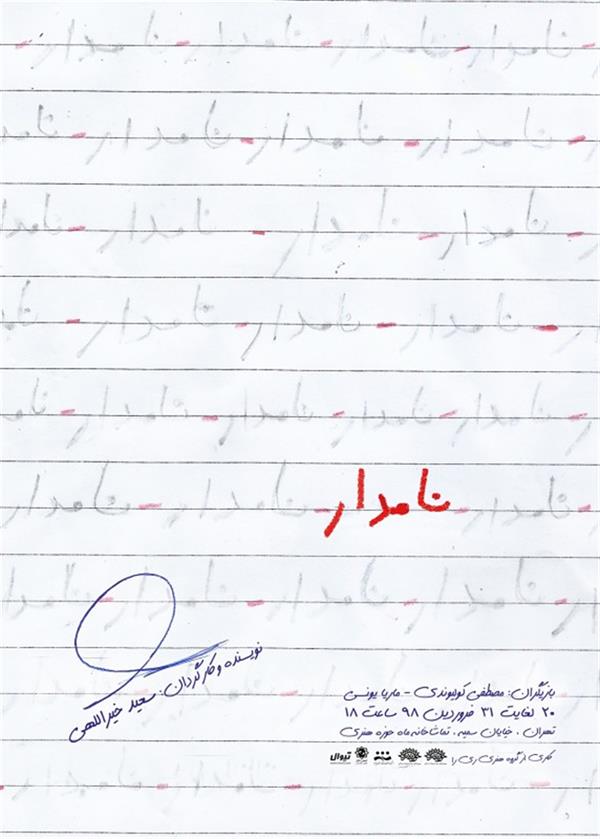 نامدار - نامدار - نامدار - نامدار
نامدار - نامدار - نامدار - نامد
نامدار - نامدار - نامدار - نامدا
نامدار - نامدار - نامدار - نا
نامدار - نامدار - نامدار - نام
نامدار - نامدار - نامدار - نامدار
نامدار - نامدار - نامدار - نامدار
نویسنده و کارگردان: سعید خیراللهی
بازیگران: مصطفی کولیوندی - ماریا یونسی
۲۰ لغایت ۳۱ فروردین ۹۸ ساعت ۱۸
تهران . خیابان سمیه . تماشاخانه ماه حوزه هنری
کاری از گروه هنری ری را تیوال